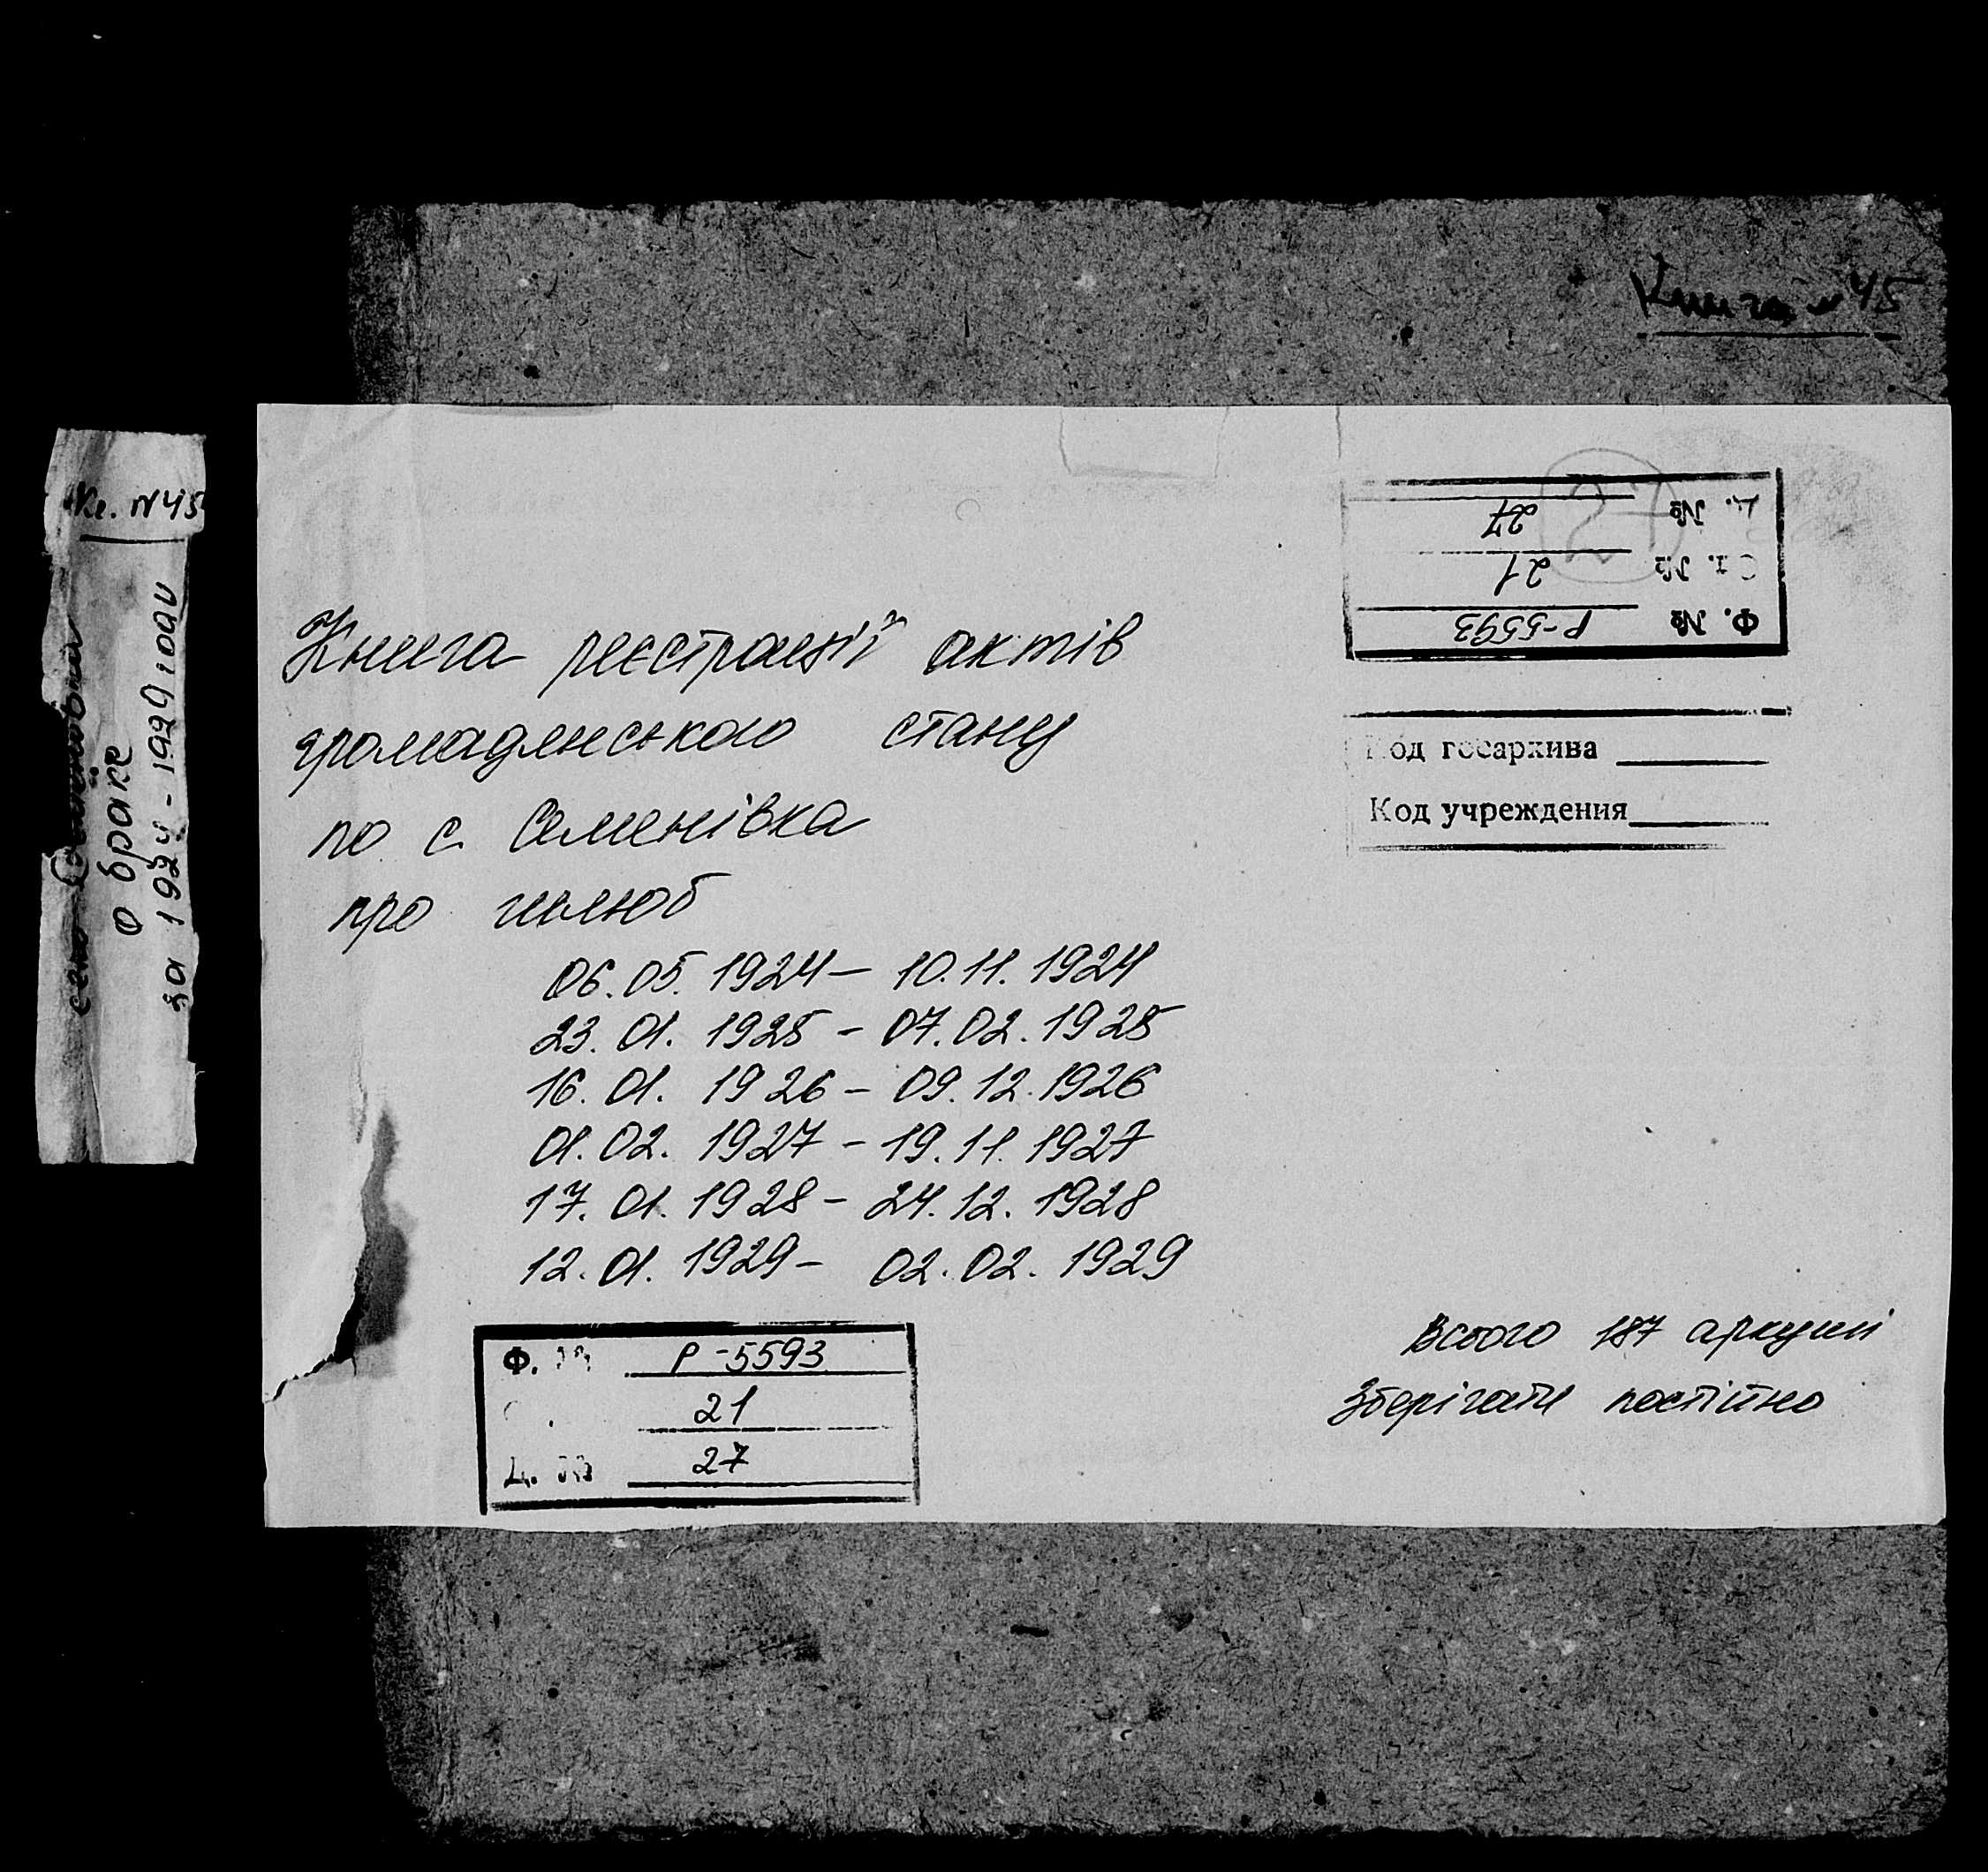 Книга № 45
Кн. N 45
село Семеновка
о браке
за 1924 - 1929 годы
27
Д. № 27
Оп. № 21
Ф. № Р-5593
Код госархива
Код учреждения
Книга реєстрації актів
громадянського стану
по с. Семенівка
про шлюб
06.05.1924 – 10.11.1924
23.01.1925 – 07.02.1925
16.01.1926 – 09.12.1926
01.02.1927 – 19.11.1927
17.01.1928 – 24.12.1928
12.01.1929 – 02.02.1929
Всього 187 аркуші
Зберігати постійно
Ф. № Р-5593
21
Д. № 27